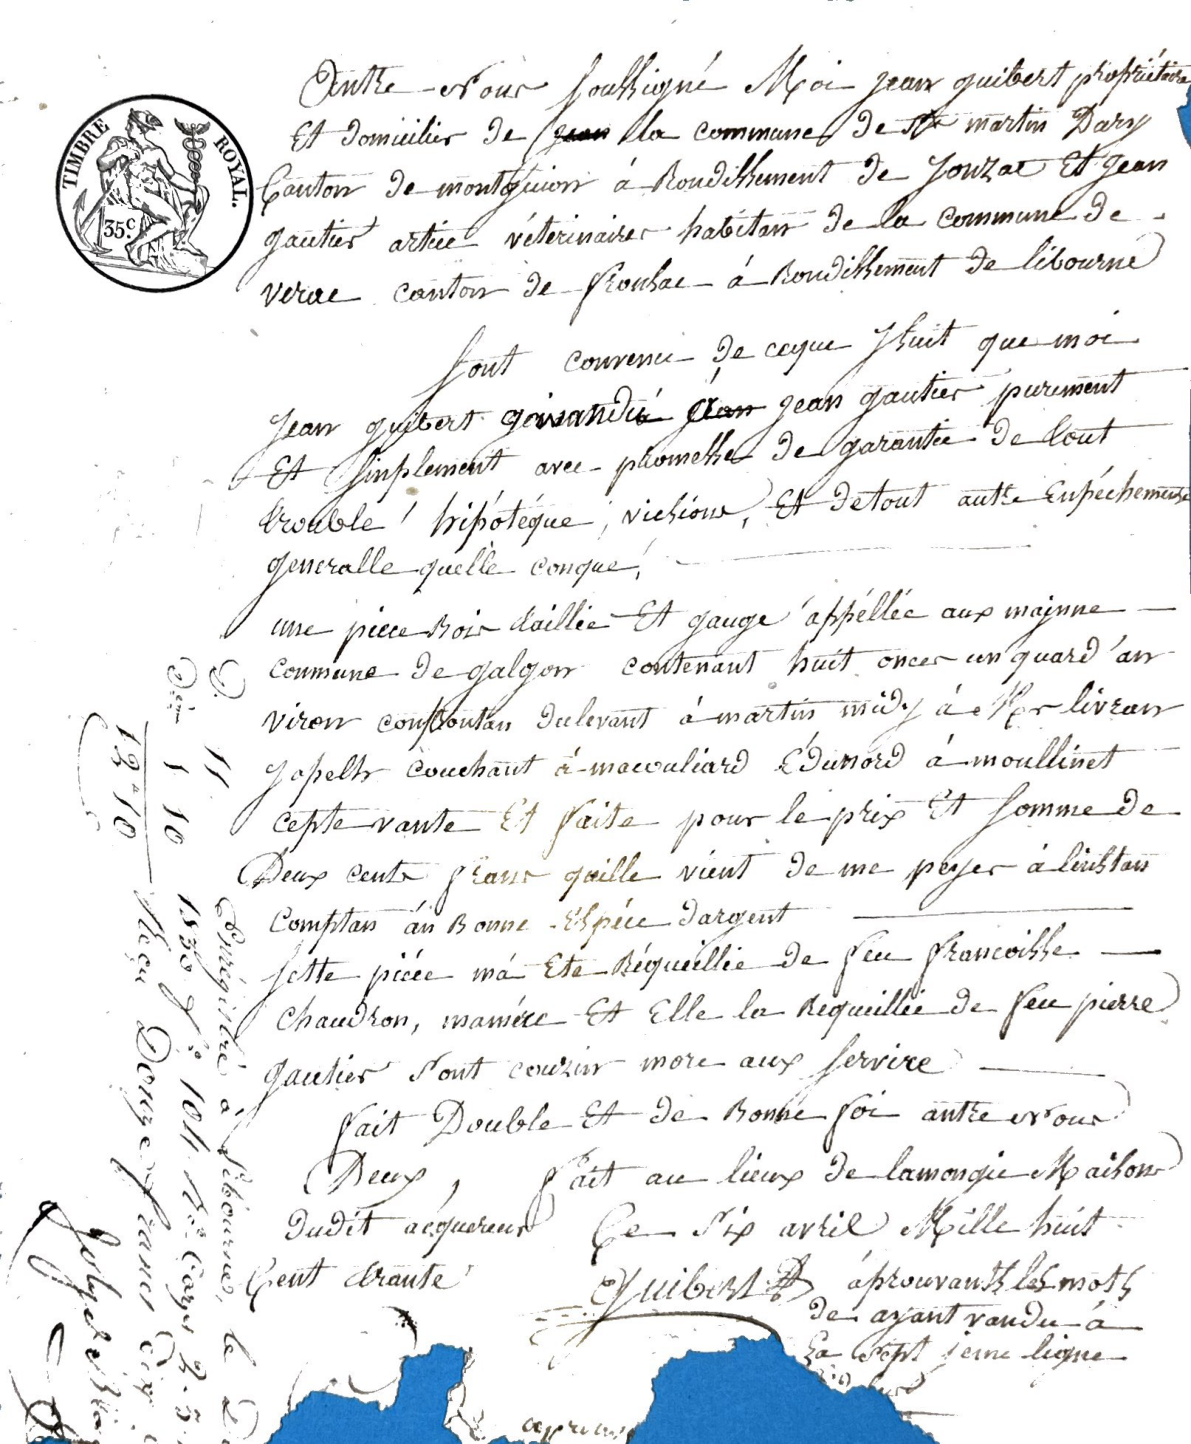 TIMBRE ROYAL.
35 c.
Antre Nous soussigné Moi jean guibert propriétaire
Et domicilier de jean la commune de st martin Dary
Canton de montguion à Rondissement de Jonzac Et jean
gautier artiee véterinairer habitan de la commune de
verac canton de fronsac à Rondissement de libourne
sont convenu de ceque shuit que moi
jean guibert jean gautier purement
Et simplement avec promesse de garantie de tout
trouble hipotéque, vicsions, Et detout autre Enpéchement
generalle quelle conque,
une piece Bois taillie Et gauge appéllée aux majnne
commune de galgon contenant huit onces un quard an
viron confrontan dulevant à martin midy à Mr livran
japelh couchant à macouliard Edunord à moullinet
cepte vante Et faite pour le prix Et somme de
Deux cents franc quille vient de me peyer à linstan
comptan an Bonne Espéce dargent
sette piéce ma Ete Réqueillie de feu francoisse
chaudron, mamére Et Elle la Requeillie de feu pierre
gautier sont couzin more aux servire
fait Double Et de Bonne foi antre Nous
Deux, fait au lieux de lamongie Maison
dudit acquereur Ce Six avril Mille huit
Cent trante
Guibert áprouvant les mots
de ayant vandu à
la sept ieme ligne
D. 11.
Dim 1 10
12 10
Enrégistré à Libourne, le
1830 fo 104 Ro Cazes 2. 5
Reçu Douze francs dix c